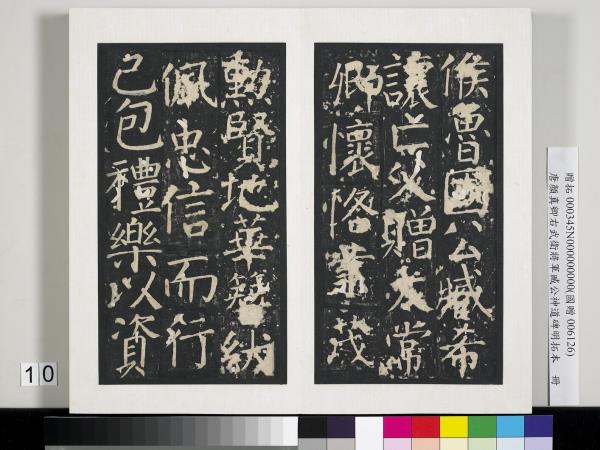 侯魯國公臧希
讓亡父贈太常
卿懷恪業茂
勳賢地華簪紱
佩忠信而行
己包禮樂以資
贈拓 000345N000000000(國贈 006126)
唐顏真卿右武衛將軍臧公神道碑明拓本 冊
10